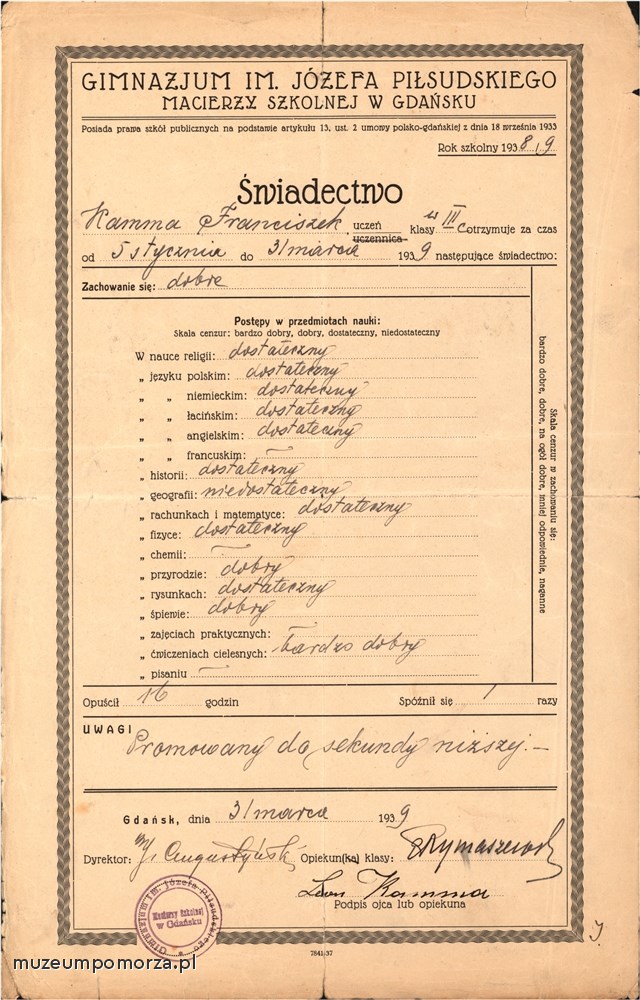 GIMNAZJUM IM. JÓZEFA PIŁSUDSKIEGO
MACIERZY SZKOLNEJ W GDAŃSKU
Posiada prawa szkół publicznych na podstawie artykułu 13. ust. 2 umowy polsko-gdańskiej z dnia 18 września 1933
Rok szkolny 1938/9
Świadectwo
Kamma Franciszek, uczeń uczennica klasy w III c otrzymuje za czas
od 5 stycznia do 31 marca 1939 następujące świadectwo:
Zachowanie się: dobre
Postępy w przedmiotach nauki:
Skala cenzur: bardzo dobry, dobry, dostateczny, niedostateczny
W nauce religii: dostateczny
„ języku polskim: dostateczny
„ „ niemieckim: dostateczny
„ „ łacińskim: dostateczny
„ „ angielskim: dostateczny
„ „ francuskim: —
„ historii: dostateczny
„ geografii: niedostateczny
„ rachunkach i matematyce: dostateczny
„ fizyce: dostateczny
„ chemii: —
„ przyrodzie: dobry
„ rysunkach: dostateczny
„ śpiewie: dobry
„ zajęciach praktycznych: —
„ ćwiczeniach cielesnych: bardzo dobry
„ pisaniu —
Skala cenzur w zachowaniu się:
bardzo dobre, dobre, na ogół dobre, mniej odpowiednie, naganne
Opuścił 16 godzin Spóźnił się 1 razy
UWAGI
Promowany do sekundy niższej. —
Gdańsk, dnia 31 marca 1939
Dyrektor: Augustyński Opiekun(ka) klasy:
Leon Kamma
Podpis ojca lub opiekuna
Gimnazjum im. Józefa Piłsudskiego
Macierzy Szkolnej
w Gdańsku
7841-37
muzeumpomorza.pl